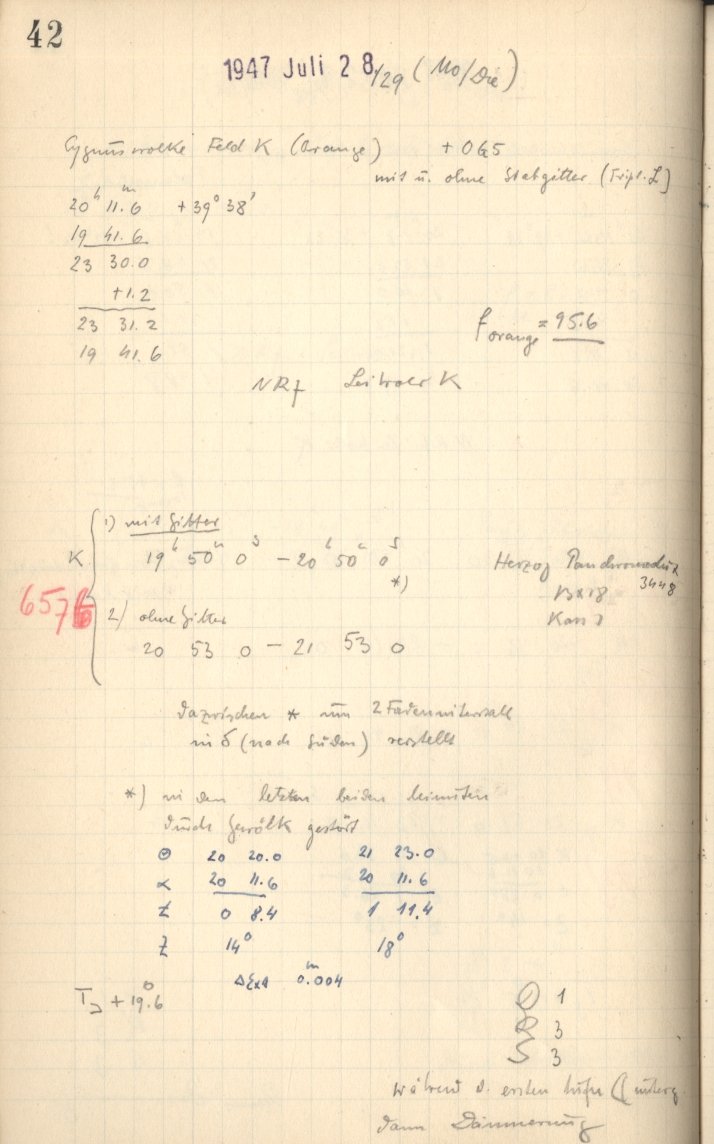 42
1947 Juli 28/29 (Mo/Die)
Cygnuswolke Feld K (Orange) + 065
mit u. ohne Stabgitter (Tripl. L)
20ʰ 11.6ᵐ +39° 38'
19 41.6
23 30.0
+1.2
23 31.2
19 41.6
f orange = 95.6
NR f Leitrohr K
1) mit Gitter
K 19ʰ 50ᵐ 0ˢ – 20ʰ 50ᵐ 0ˢ
*)
Herzog
3448
Kass
657
2) ohne Gitter
20 53 0 – 21 53 0
dazwischen * um 2 Fadenintervall
in δ (nach Süden) verstellt
*) in den letzten beiden Minuten
durch Gewölk gestört
Θ 20 20.0 21 23.0
α 20 11.6 20 11.6
t 0 8.4 1 11.4
z 14° 18°
ΔExt 0ᵐ.004
T + 19.6°
1
R 3
S 3
während d. ersten Aufn ☾ unterg.
dann Dämmerung